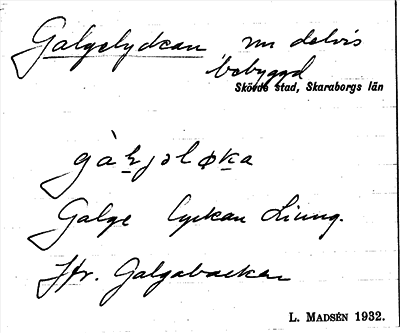 Galgelyckan, nu delvis
bebyggd
Skövde stad, Skaraborgs län
Galge lyckan
Jfr. Galgabacken
L. MADSÉN 1932.